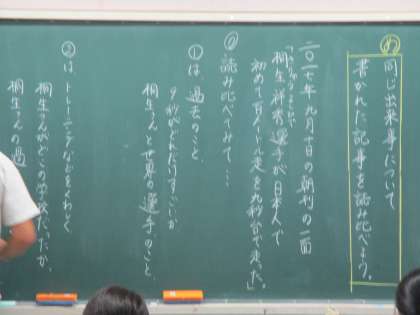 め
同じ出来事について
書かれた記事を読み比べよう。
二〇一七年 九月十日の朝刊の一面
桐生祥秀選手が日本人で
初めて百メートル走を九秒台で走った」
読み比べてみて…
①は 過去のこと、
9秒がどれだけすごいか
桐生さんと世界の選手のこと、
②は、トレーニングなどをくわしく
桐生さんがどこの学校だったか、
桐生さんの過